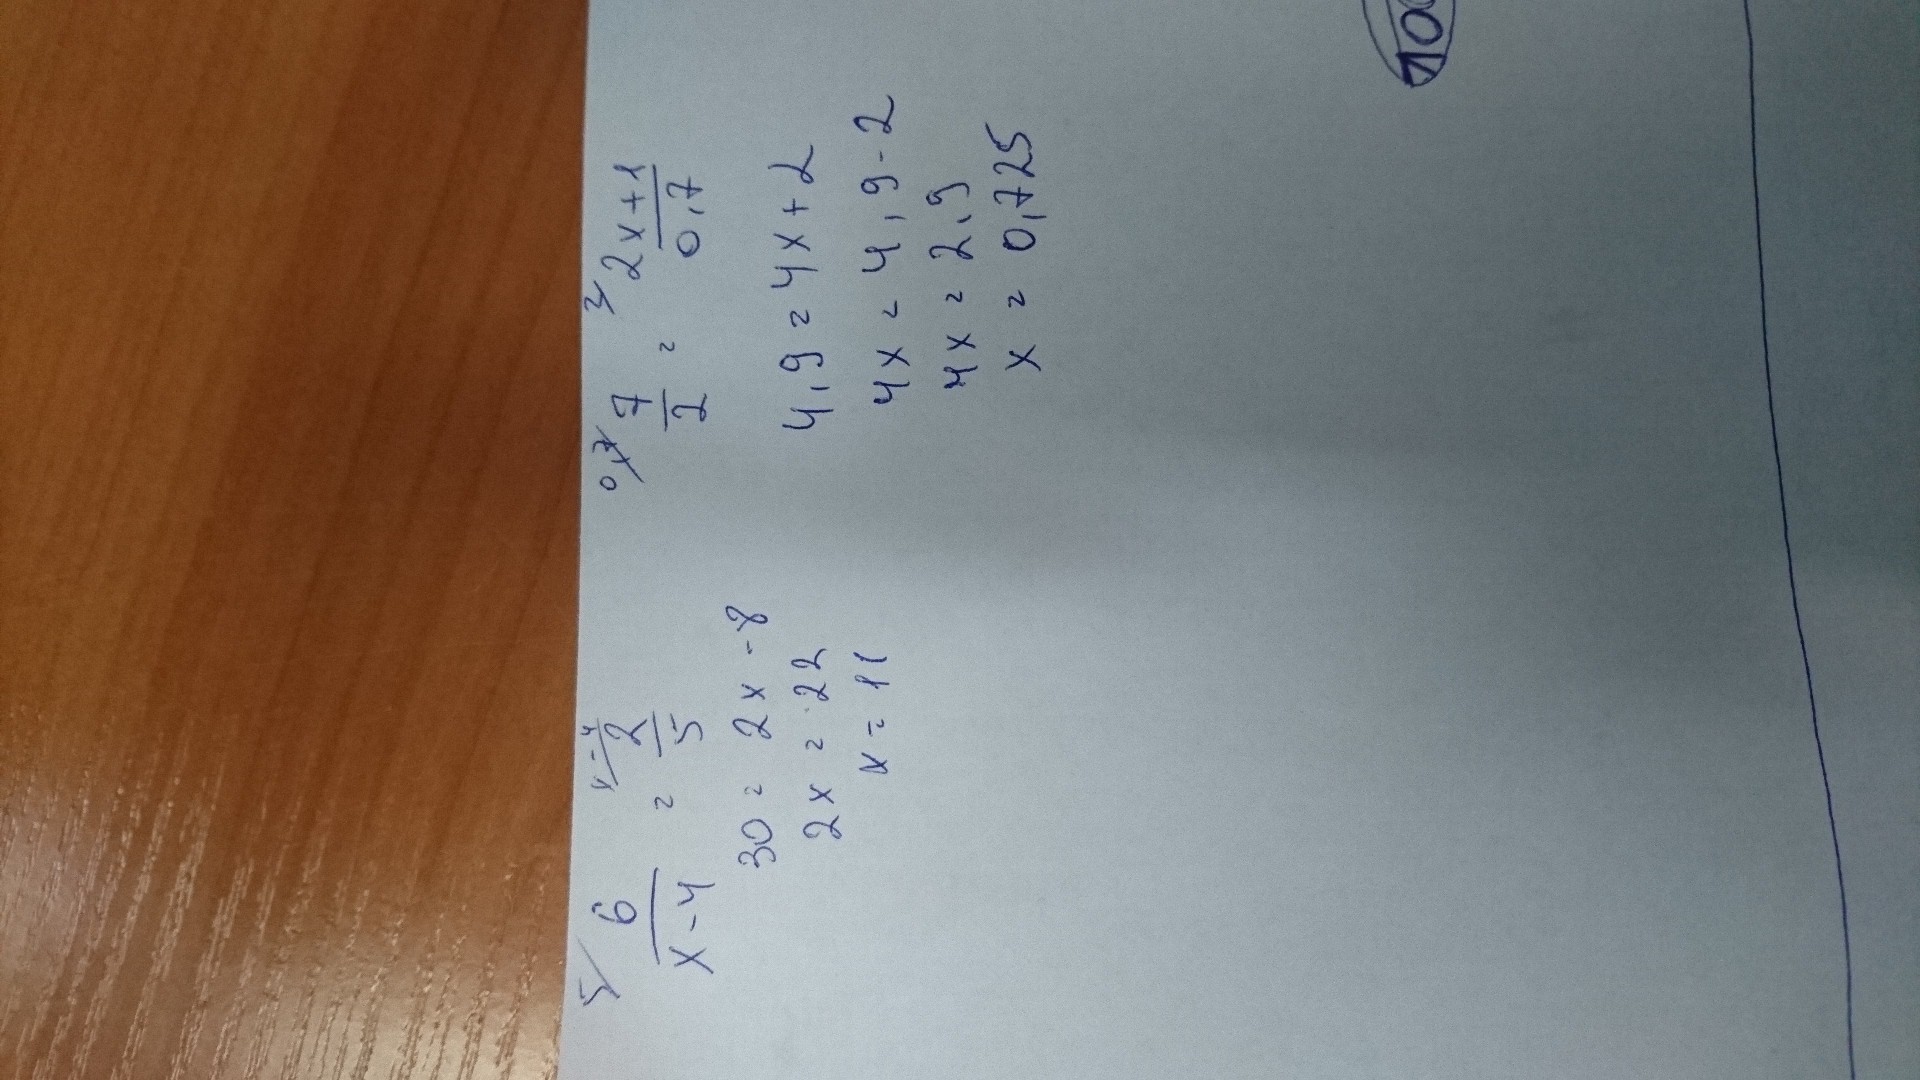 5/ 6/(x-4) = x-4/ 2/5
30 = 2x - 8
2x = 22
x = 11
0,7/ 7/2 = 2/ (2x+1)/0,7
4,9 = 4x + 2
4x = 4,9 - 2
4x = 2,9
x = 0,725